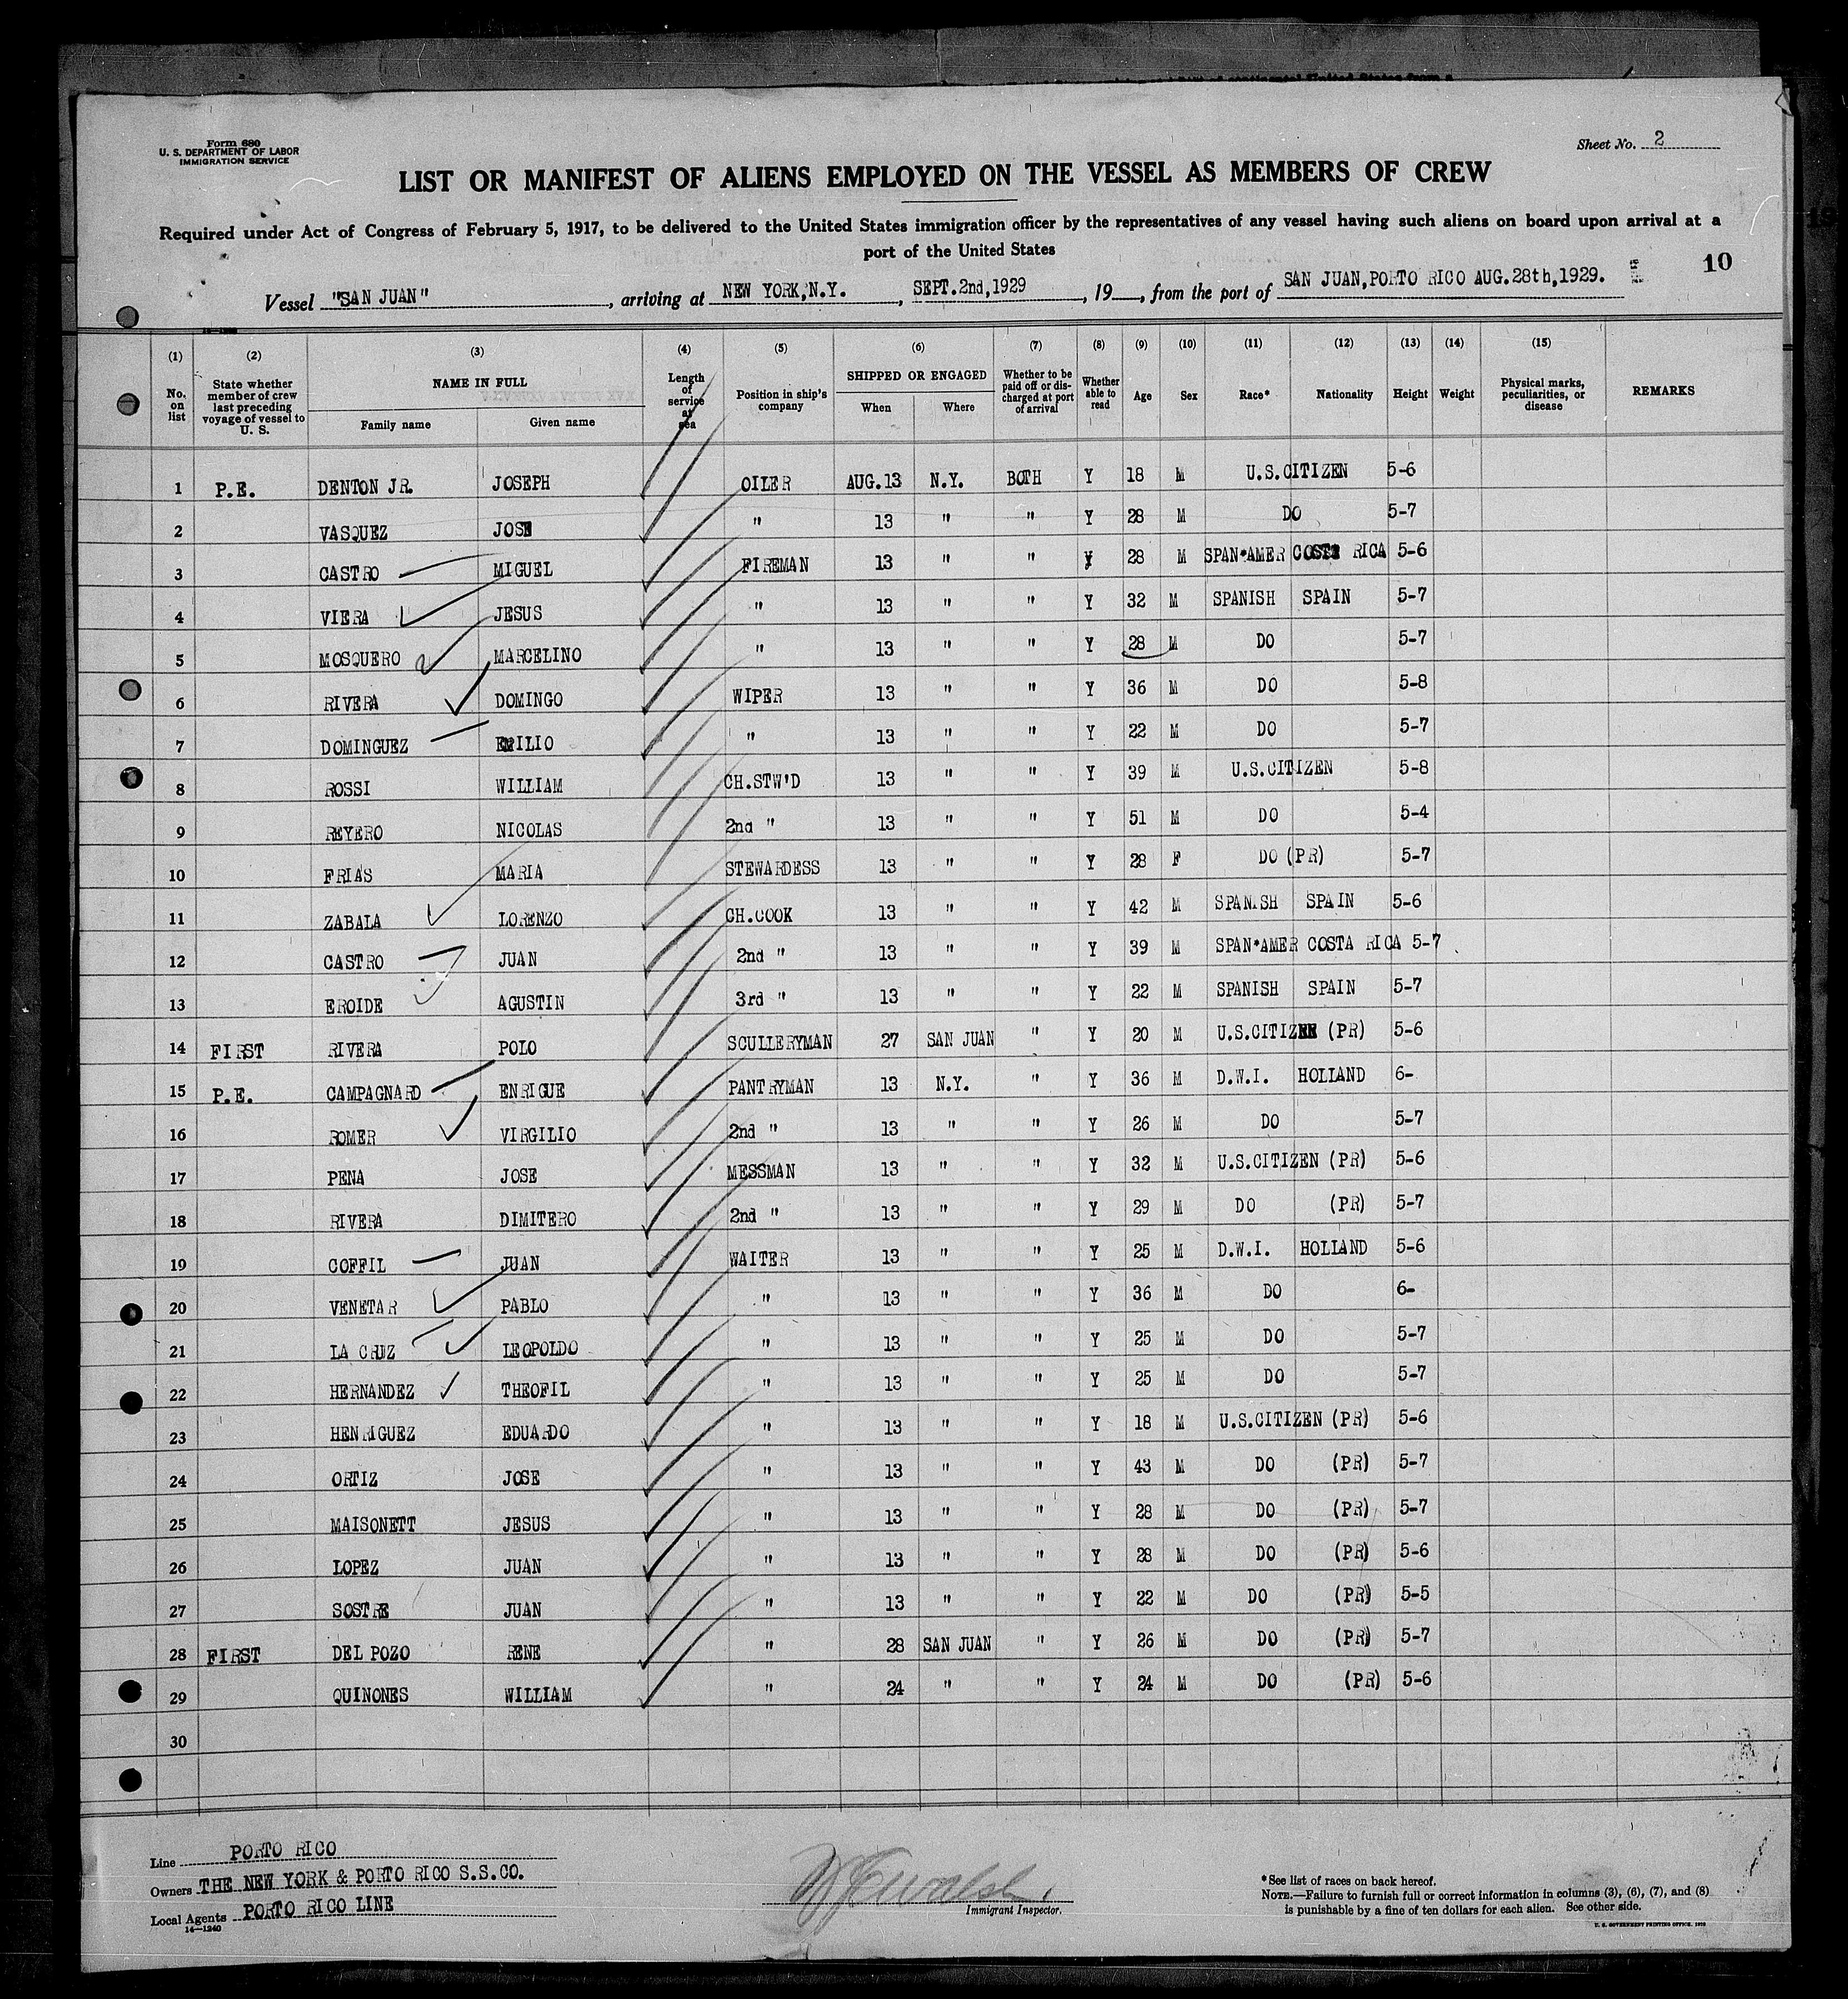 Form 680
U. S. DEPARTMENT OF LABOR
IMMIGRATION SERVICE
Sheet No. 2
LIST OR MANIFEST OF ALIENS EMPLOYED ON THE VESSEL AS MEMBERS OF CREW
Required under Act of Congress of February 5, 1917, to be delivered to the United States immigration officer by the representatives of any vessel having such aliens on board upon arrival at a
port of the United States
10
Vessel "SAN JUAN", arriving at NEW YORK, N.Y., SEPT. 2nd, 1929, 19__, from the port of SAN JUAN, PORTO RICO AUG. 28th, 1929.
(1) (2) (3) (4) (5) (6) (7) (8) (9) (10) (11) (12) (13) (14) (15)
No. on list | State whether member of crew last preceding voyage of vessel to U. S. | NAME IN FULL Family name Given name | Length of service at sea | Position in ship's company | SHIPPED OR ENGAGED When Where | Whether to be paid off or discharged at port of arrival | Whether able to read | Age | Sex | Race* | Nationality | Height | Weight | Physical marks, peculiarities, or disease | REMARKS
1 P.E. DENTON JR. JOSEPH OILER AUG. 13 N.Y. BOTH Y 18 M U.S.CITIZEN 5-6
2 VASQUEZ JOSE " 13 " " Y 28 M DO 5-7
3 CASTRO MIGUEL FIREMAN 13 " " Y 28 M SPAN*AMER COSTA RICA 5-6
4 VIERA JESUS " 13 " " Y 32 M SPANISH SPAIN 5-7
5 MOSQUERO MARCELINO " 13 " " Y 28 M DO 5-7
6 RIVERA DOMINGO WIPER 13 " " Y 36 M DO 5-8
7 DOMINGUEZ EMILIO " 13 " " Y 22 M DO 5-7
8 ROSSI WILLIAM CH.STW'D 13 " " Y 39 M U.S.CITIZEN 5-8
9 REYERO NICOLAS 2nd " 13 " " Y 51 M DO 5-4
10 FRIAS MARIA STEWARDESS 13 " " Y 28 F DO (PR) 5-7
11 ZABALA LORENZO CH.COOK 13 " " Y 42 M SPANISH SPAIN 5-6
12 CASTRO JUAN 2nd " 13 " " Y 39 M SPAN*AMER COSTA RICA 5-7
13 EROIDE AGUSTIN 3rd " 13 " " Y 22 M SPANISH SPAIN 5-7
14 FIRST RIVERA POLO SCULLERYMAN 27 SAN JUAN " Y 20 M U.S.CITIZEN (PR) 5-6
15 P.E. CAMPAGNARD ENRIGUE PANTRYMAN 13 N.Y. " Y 36 M D.W.I. HOLLAND 6-
16 ROMER VIRGILIO 2nd " 13 " " Y 26 M DO 5-7
17 PENA JOSE MESSMAN 13 " " Y 32 M U.S.CITIZEN (PR) 5-6
18 RIVERA DIMITERO 2nd " 13 " " Y 29 M DO (PR) 5-7
19 COFFIL JUAN WAITER 13 " " Y 25 M D.W.I. HOLLAND 5-6
20 VENETAR PABLO " 13 " " Y 36 M DO 6-
21 LA CRUZ LEOPOLDO " 13 " " Y 25 M DO 5-7
22 HERNANDEZ THEOFIL " 13 " " Y 25 M DO 5-7
23 HENRIGUEZ EDUARDO " 13 " " Y 18 M U.S.CITIZEN (PR) 5-6
24 ORTIZ JOSE " 13 " " Y 43 M DO (PR) 5-7
25 MAISONETT JESUS " 13 " " Y 28 M DO (PR) 5-7
26 LOPEZ JUAN " 13 " " Y 28 M DO (PR) 5-6
27 SOSTRE JUAN " 13 " " Y 22 M DO (PR) 5-5
28 FIRST DEL POZO RENE " 28 SAN JUAN " Y 26 M DO (PR) 5-7
29 QUINONES WILLIAM " 24 " " Y 24 M DO (PR) 5-6
30
Line PORTO RICO
Owners THE NEW YORK & PORTO RICO S.S.CO.
Local Agents PORTO RICO LINE
14—1240
Immigrant Inspector.
*See list of races on back hereof.
NOTE.—Failure to furnish full or correct information in columns (3), (6), (7), and (8)
is punishable by a fine of ten dollars for each alien. See other side.
U. S. GOVERNMENT PRINTING OFFICE